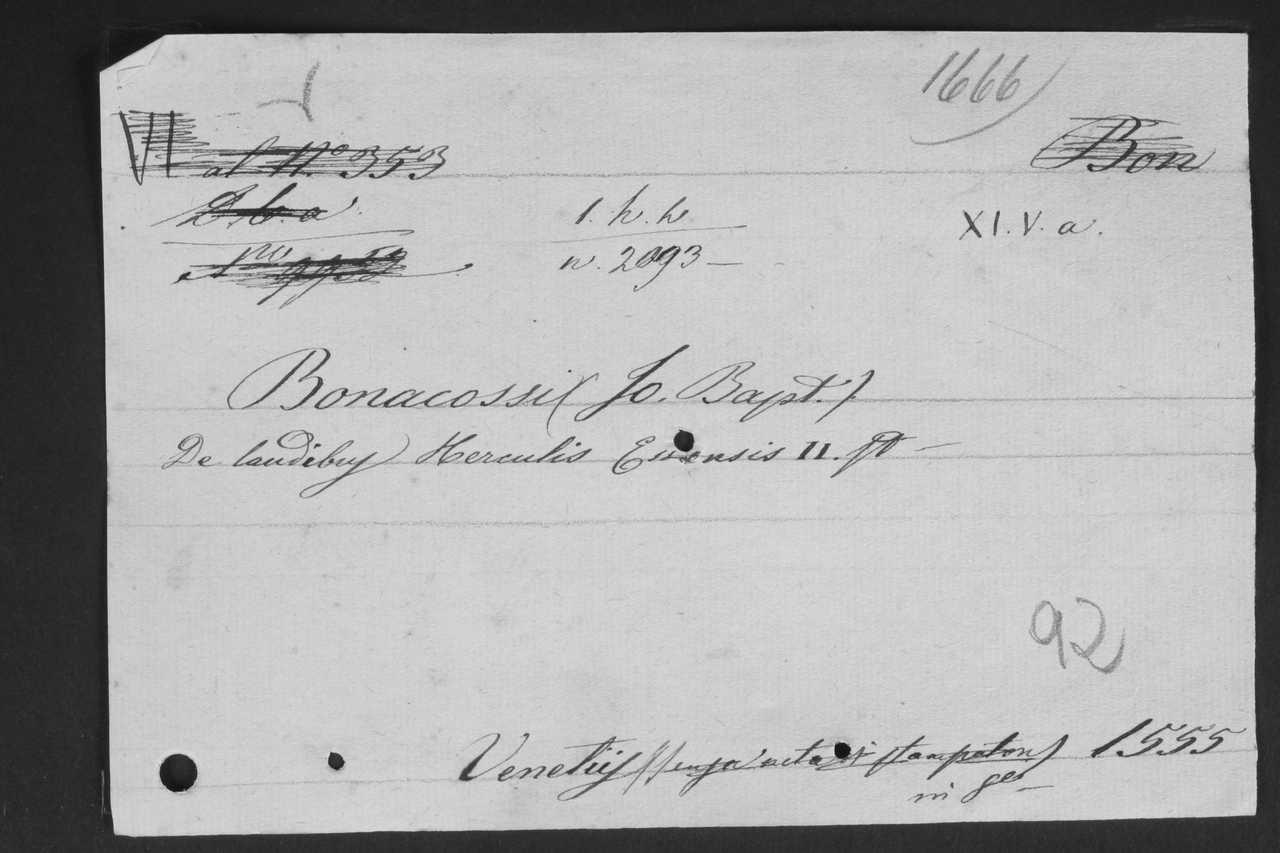 1666
VI al N.º 353
Bon
D. b. a.
1. h. h.
XI. V. a.
n. 2093 —
Bonacossi (Jo. Bapt.)
De laudibus Herculis Estensis II.
92
Venetijs (senza nota di stampatore) 1555
in 8º